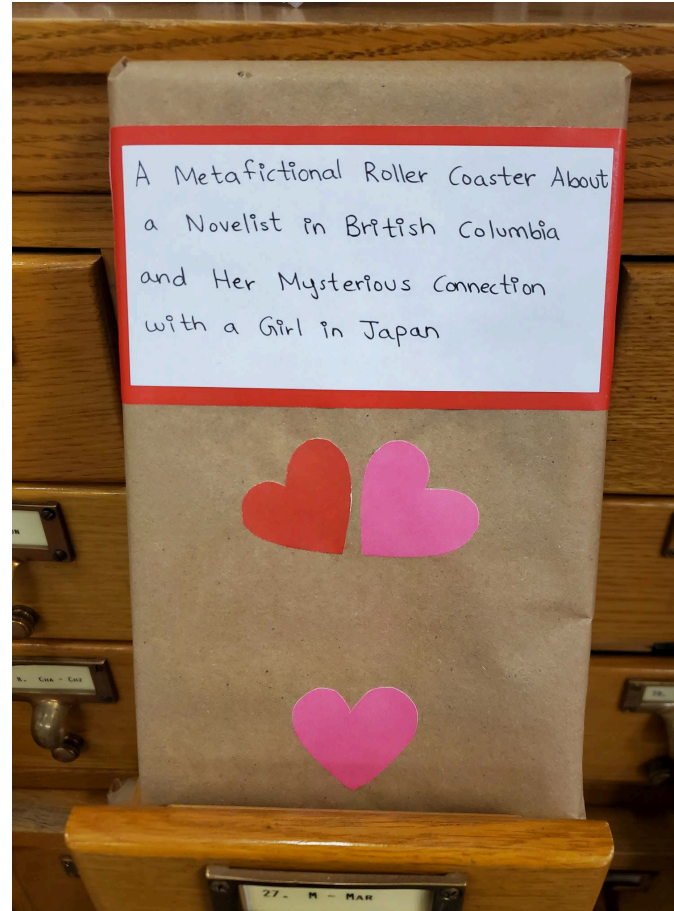 A Metafictional Roller Coaster About
a Novelist in British Columbia
and Her Mysterious Connection
with a Girl in Japan
8. CHA - CHZ
27. M - MAR